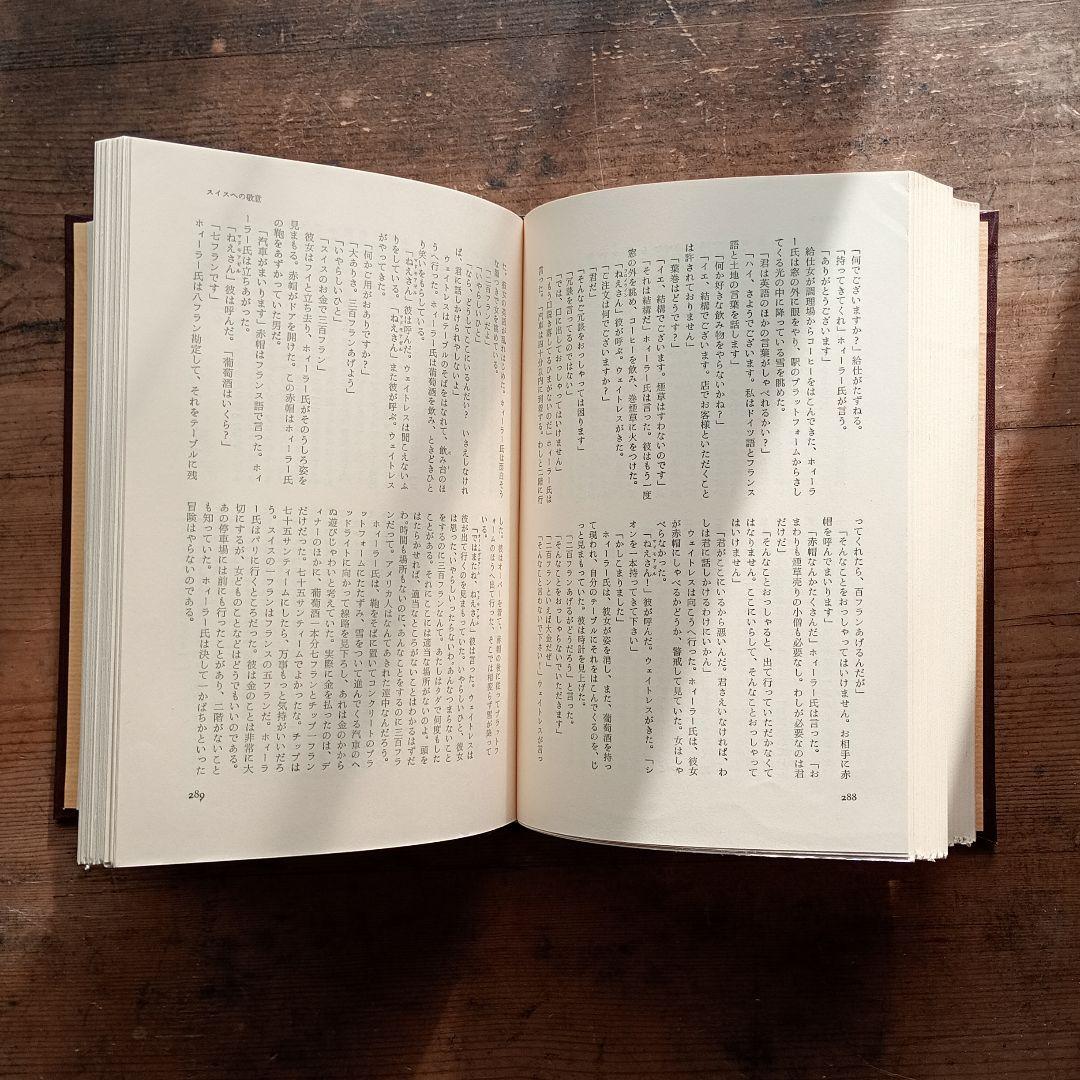 「何でございますか？」給仕がたずねる。
「持ってきてくれ」ホィーラー氏が言う。
「ありがとうございます」
給仕女が調理場からコーヒーをはこんできた、ホィーラ
ー氏は窓の外に眼をやり、駅のプラットフォームからさし
てくる光の中に降っている雪を眺めた。
「君は英語のほかの言葉がしゃべれるかい？」
「ハイ、さようでございます。私はドイツ語とフランス
語と土地の言葉を話します」
「何か好きな飲み物をやらないかね？」
「イエ、結構でございます。店でお客様といただくこと
は許されておりません」
「葉巻はどうです？」
「イエ、結構でございます。煙草はすわないのです」
「それは結構だ」ホィーラー氏は言った。彼はもう一度
窓の外を眺め、コーヒーを飲み、巻煙草に火をつけた。
「ねえさん」彼が呼ぶ。ウェイトレスがきた。
「ご注文は何でございますか？」
「君だ」
「そんなご冗談をおっしゃっては困ります」
「冗談を言ってるのではない」
「では、口に出しておっしゃってはいけません」
「もう口説き落してるひまがないのだ」ホィーラー氏は
言った。「汽車は四十分以内に到着する。わしと二階に行
ってくれたら、百フランあげるんだが」
「そんなことをおっしゃってはいけません。お相手に赤
帽を呼んでまいります」
「赤帽なんかたくさんだ」ホィーラー氏は言った。「お
まわりも煙草売りの小僧も必要なし。わしが必要なのは君
だけだ」
「そんなことをおっしゃると、出て行っていただかなくて
はなりません。ここにいらして、そんなことおっしゃって
はいけません」
「君がここにいるから悪いんだ。君さえいなければ、わ
しは君に話しかけるわけにいかん」
ウェイトレスは向こうへ行った。ホィーラー氏は、彼女
が赤帽にしゃべるかどうか、警戒して見ていた。女はしゃ
べらなかった。
「ねえさん」彼が呼んだ。ウェイトレスがきた。「シ
オンを一本持ってきて下さい」
「かしこまりました」
ホィーラー氏は、彼女が姿を消し、また、葡萄酒を持っ
て現われ、自分のテーブルにそれをはこんでくるのを、じ
っと見まもっていた。彼は時計を見上げた。
「二百フランあげるがどうだろう」と言った。
「そんなことをおっしゃらないでいただきます」
「二百フランといえば大金だぜ」
「そんなこと言わないで下さい！」ウェイトレスが言っ
288
スイスへの敬意
な顔つきで女を眺めている。
「二百フランだよ」
「いやらしいひと」
「なら、どうしてここにいるんだい？ いさえしなけれ
ば、君に話しかけられやしないよ」
ウェイトレスはテーブルのそばをはなれて、飲み台のほ
うへ行った。ホィーラー氏は葡萄酒を飲み、ときどきひと
り笑いをもらしている。
「ねえさん」彼は呼んだ。ウェイトレスは聞こえないふ
りをしている。「ねえさん」また彼が呼ぶ。ウェイトレス
がやってきた。
「何かご用がおありですか？」
「大ありさ。三百フランあげよう」
「いやらしいひと」
「スイスのお金で三百フラン」
彼女はフイと立ち去り、ホィーラー氏がそのうしろ姿を
見まもる。赤帽がドアを開けた。この赤帽はホィーラー氏
の鞄をあずかっていた男だ。
「汽車がまいります」赤帽はフランス語で言った。ホィ
ーラー氏は立ちあがった。
「ねえさん」彼は呼んだ。「葡萄酒はいくら？」
「七フランです」
ホィーラー氏は八フラン勘定して、それをテーブルに残
彼が出て行くのを見まもっていた。いやらしいひと、彼女
は思った、いやらしいったらないわ。あんなつまらないこと
をするのに三百フランなんて。あたしはタダで何度もした
ことがある。それにここには適当な場所がないのよ。頭を
はたらかせれば、適当なところがないことはわかるはずだ
わ。時間も場所もないのに、あんなことをするのに三百フラ
ンだって。アメリカ人はなんてあきれた連中なんだろう。
ホィーラー氏は、鞄をそばに置いてコンクリートのプラ
ットフォームにたたずみ、雪をついて進んでくる汽車のヘ
ッドライトに向かって線路を見下ろし、あれは金のかから
ぬ遊びじゃわいと考えていた。実際に金を払ったのは、デ
ィナーのほかに、葡萄酒一本分七フランとチップ一フラン
だけだった。七十五サンティームでよかったな。チップは
七十五サンティームにしたら、万事もっと気持がいいだろ
う。スイスの一フランはフランスの五フランだ。ホィーラ
ー氏はパリに行くところだった。彼は金のことは非常に大
切にするが、女どものことなどはどうでもいいのである。
あの停車場には前にも行ったことがあり、二階がないこと
も知っていた。ホィーラー氏は決して一かばちかといった
冒険はやらないのである。
289